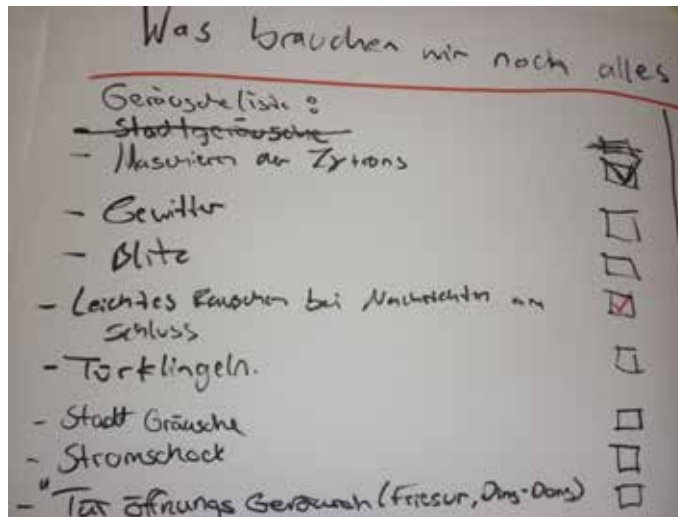 Was brauchen wir noch alles
Geräuscheliste:
- Stadtgeräusche
- Maschieren der Zytrons
- Gewitter
- Blitz
- Leichtes Rauschen bei Nachrichten am
Schluss
- Türklingeln.
- Stadt Gräusche
- Stromschock
- Tür öffnungs Geräusch (Friesur, Ding-Dong)